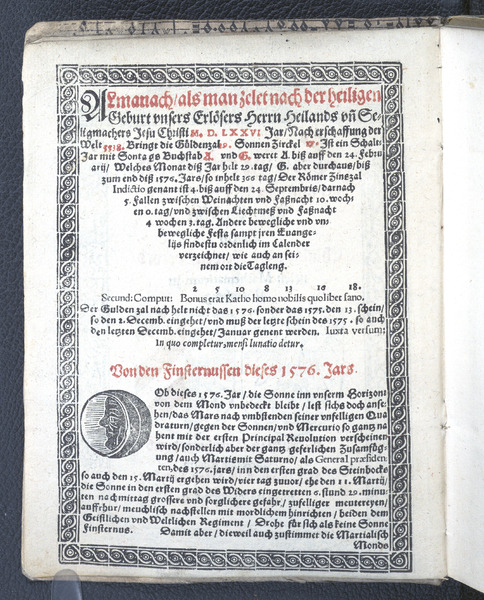 ALmanach/als man zelet nach der heiligen
Geburt vnsers Erlösers Herrn Heilands vñ Se-
ligmachers Jesu Christi M. D. LXXVI Jar/Nach erschaffung der
Welt 5538. Bringt die Güldenzal 9. Sonnen Zirckel Ist ein Schalt-
Jar mit Sontags Buchstab A. vnd G. weret A. biß auff den 24. Febru
arij/ Welches Monat diß Jar helt 29. tag/ G. aber durchaus/biß
zum end diß 1576. Jars/so inhelt 366 tag/ Der Römer Zinszal
Indictio genant ist 4. biß auff den 24. Septembris/darnach
5. Fallen zwischen Weinachten vnd Faßnacht 10. woch-
en 0. tag/vnd zwischen Liechtmeß vnd Faßnacht
4 wochen 3. tag. Andere bewegliche vnd vn-
bewegliche Festa sampt jren Euange-
lijs findestu ordenlich im Calender
verzeichnet/ wie auch an sei-
nem ort die Tagleng.
2 5 10 8 13 10 18.
Secund: Comput: Bonus erat Ratho homo nobilis quolibet sano.
Der Gulden zal nach helt nicht das 1576. sonder das 1575. den 13. schein/
so den 2. Decemb. eingehet/vnd muß der letzte schein des 1575. so auch
den letzten Decemb. eingehet/Januar genent werden. Iuxta versum:
In quo completur, mensi lunatio detur.
Von den Finsternussen dieses 1576. Jars.
OB dieses 1576. Jar/ die Sonne inn vnserm Horizont
von dem Mond vnbedeckt bleibt / lest sichs doch anse-
hen/das Mars nach vmbstenden seiner vnseligen Qua
draturn/gegen der Sonnen/vnd Mercurio so gantz na
hent mit der ersten Principal Reuolution verscheinen
wird/sonderlich aber der gantz geferlichen Zusamfüg-
ung/auch Martis mit Saturno/ als General præsiden-
ten/des 1576. jars/ inn den ersten grad des Steinbocks
so auch den 15. Martij ergehen wird/vier tag zuuor/ ehe den 11. Martij
die Sonne in den ersten grad des Widers eingetretten 6. stund 29. minu-
ten nach mittag grossere vnd sorglichere gefahr/ zufelliger meutereyen/
auffrhur/ meuchlisch nachstellen mit mordlichem hinrichten / beiden dem
Geistlichen vnd Weltlichen Regiment / Drohe für sich als keine Sonne
Finsternus. Damit aber / dieweil auch zustimmet die Martialisch
Monds